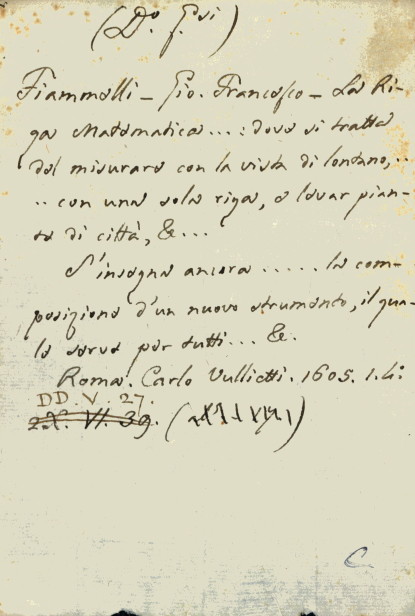 (D.º f. Esi)
Fiammelli – Gio. Francesco – La Ri-
ga Matematica ... : dove si tratta
del misurare con la vista di lontano, ..
.. con una sola riga, e levar pian-
te di città, &...
S'insegna ancora ..... la com-
posizione d'un nuovo strumento, il qua-
le serve per tutti ... &.
Roma. Carlo Vullietti. 1605. 1. 4º
DD. V. 27.
VI. 39.
C